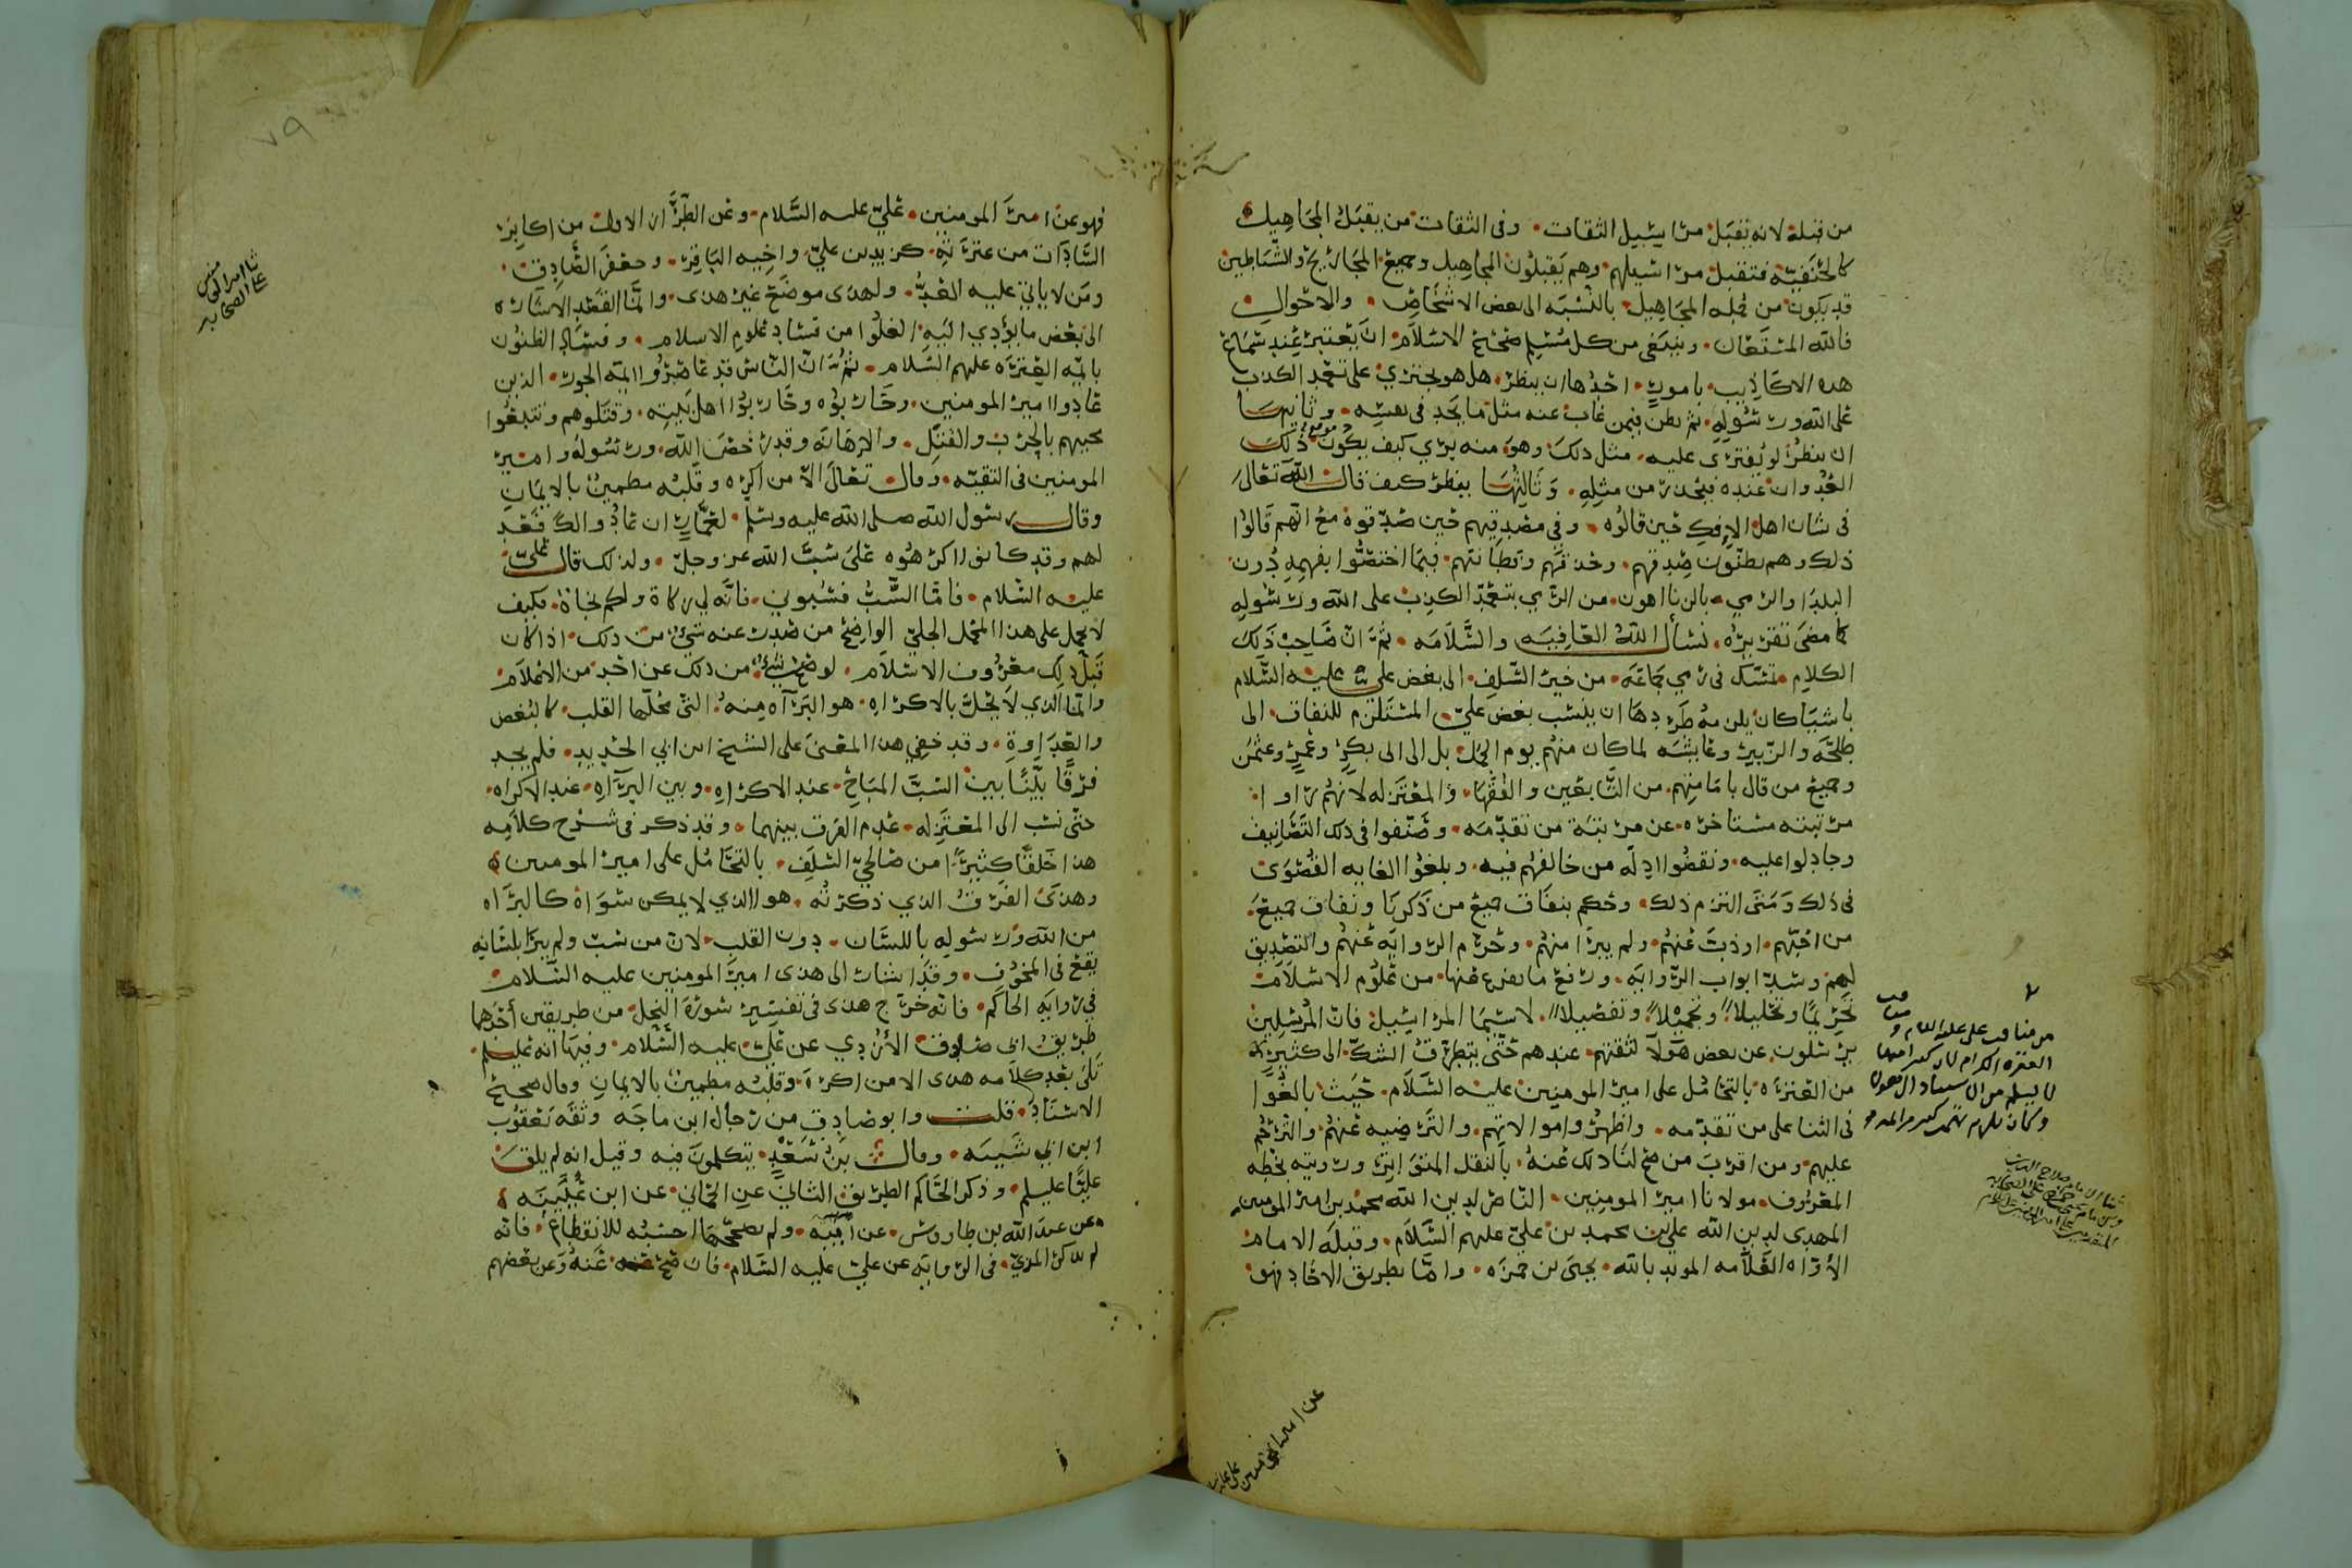 من قبله لانه يقبل مراسيل الثقات وفى الثقات من يقبل المجاهيل
كالحنفيه فتقبل مراسيلهم وهم يقبلون المجاهيل وجميع المجاريح والشياطين
قد يكون من قبله المجاهيل بالنسبه الى بعض الاشخاص والاحوال
فالله المستعان وينبغى من كل مسلم صحيح الاسلام ان يعتبر عند سماع
هذه الاكاذيب بامور احدها ان ينظر هل هو يجتري على تعمد الكذب
على الله ورسوله ثم يظن فيمن غاب عنه مثل ما يجد فى نفسه وثانيها
ان ينظر لو يفترى عليه مثل ذلك وهو منه بري كيف يكون موقع ذلك
العدوان عنده فيحذر من مثله وثالثها ينظر كيف قال الله تعالى
فى شان اهل الافك حين قالوه وفي مصدقيهم حين صدقوه مع انهم قالوا
ذلك وهم يظنون صدقهم وحذقهم وفطانتهم فيما اختصوا بفهمه دون
البلدا والرمي بالزنا اهون من الرمي بتعمد الكذب على الله ورسوله
كما مضى تقريره نسأل الله العافيه والسلامه ثم ان صاحب ذلك
الكلام تمسك فى رمي جماعه من خير السلف الى بغض علي عليه السلام
باشيا كان يلزمه طردها ان ينسب بغض علي المستلزم للنفاق الى
طلحه والزبير وعايشه لما كان منهم يوم الجمل بل الى ابى بكر وعمر وعثمن
وجميع من قال بامامتهم من التابعين والفقها والمعتزله لانهم راوا
مرتبته مستاخره عن مرتبة من تقدمه وصنفوا فى ذلك التصانيف
وجادلوا عليه ونقضوا ادله من خالفهم فيه وبلغوا الغايه القصوى
فى ذلك ومتى التزم ذلك وحكم بنفاق جميع من ذكرنا ونفاق جميع
من احبهم اوذب عنهم ولم يبرا منهم وحرم الروايه عنهم والتصديق
لهم وسد ابواب الروايه ورفع ما يفرع عنها من علوم الاسلام
تحريما وتحليلا وتجميلا وتفصيلا لاسيما المراسيل فان المرسلين
يرسلون عن بعض هولا لثقتهم عندهم حتى يتطرق الشك الى كثير
من العتره بالتحامل على امير المومنين عليه السلام حيث بالغوا
فى الثنا على من تقدمه واظهروا موالاتهم والترضيه عنهم والترحم
عليهم ومن اقرب من صح لنا ذلك عنه بالنقل المتواتر ورويته بخطه
المعروف مولانا امير المومنين الناصر لدين الله محمد بن امير المومنين
المهدى لدين الله علي بن محمد بن علي عليهم السلام وقبله الامام
الأواه العلامه المويد بالله يحيى بن حمزه واما بطريق الاحاد فهو
من مناقب على عليه السلام و
العتره الكرام
عن امير المومنين على عليه
فهو عن امير المومنين علي عليه السلام وعن الطراز الاول من اكابر
السادات من عترته كزيد بن علي واخيه الباقر وجعفر الصادق
ومن لا ياتي عليه العد ولهذى موضع غير هذى وانما القصد الاشاره
الى بعض ما يؤدي اليه الغلوا من فساد علوم الاسلام وفساد الظنون
بايمه العتره عليهم السلام ثم ان الناس قد عاصروا ايمه الجور الذين
عادوا امير المومنين وحاربوه وحاربوا اهل بيته وقتلوهم وتتبعوا
محبيهم بالحرب والقتل والاهانه وقد رخص الله ورسوله وامير
المومنين فى التقيه وقال تعالى الا من اكره وقلبه مطمين بالايمان
وقال رسول الله صلى الله عليه وسلم لعمار ان عادوا لك فعد
لهم وقد كانوا اكرهوه على سب الله عز وجل ولذلك قال علي
عليه السلام فاما السب فسبوني فانه لي زكاة ولكم نجاة فكيف
لا يحمل على هذا المحمل الجلي الواضح من صدر عنه شي من ذلك اذا كان
قبل ذلك معروف الاسلام لو صح شي من ذلك عن احد من الاعلام
وانما الذي لا يحل بالاكراه هو البراه منه التى محلها القلب كالبغض
والعداوة وقد خفي هذا المعنى على الشيخ ابن ابي الحديد فلم يجد
فرقا بينا بين السب المباح عند الاكراه وبين البراه عند الاكراه
حتى نسب الى المعتزله عدم الفرق بينهما وقد ذكر فى شرح كلامه
هذا خلقا كثيرا من صالحي السلف بالتحامل على امير المومنين
وهذى الفرق الذي ذكرته هو الذي لا يمكن سواه كالبراه
من الله ورسوله باللسان دون القلب لان من سب ولم يبرا بلسانه
يقع فى المخوف وقد اشار الى هذى امير المومنين عليه السلام
في روايه الحاكم فانه خرج هذى فى تفسير سورة النحل من طريقين احدهما
طريق ابى صادق الأزدي عن علي عليه السلام وفيها انه عليلم
تلى بعد كلامه هذى الا من اكره وقلبه مطمين بالايمان وقال صحيح
الاسناد قلت وابو صادق من رجال ابن ماجه وثقه يعقوب
ابن ابي شيبه وقال بن سعد يتكلمون فيه وقيل انه لم يلق
عليا عليلم وذكر الحاكم الطريق الثاني عن الحماني عن ابن عيينه
عن عبد الله بن طاووس عن ابيه ولم يصححها احسبه للانقطاع فانه
لم يذكره المزي فى الروايه عن علي عليه السلام فان صح عنه وعن بعضهم
ثنا امير المومنين
على الصحابه
٧٩